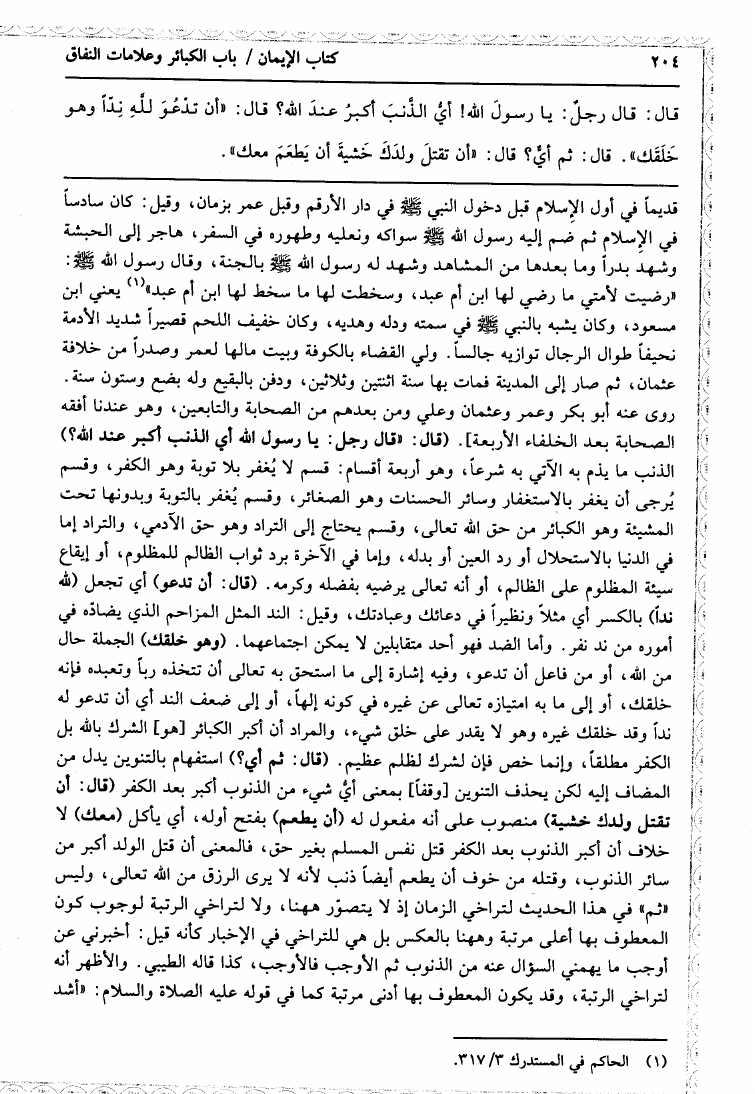 ٢٠٤ كتاب الإيمان / باب الكبائر وعلامات النفاق
قال: قال رجلٌ: يا رسولَ الله! أيُّ الذَّنبَ أكبرُ عندَ الله؟ قال: «أن تدْعُوَ للَّهِ نِدّاً وهو
خَلَقَك». قال: ثم أيٌّ؟ قال: «أن تقتلَ ولدَكَ خَشيةَ أن يَطعَمَ معك».
قديماً في أول الإسلام قبل دخول النبي ﷺ في دار الأرقم وقبل عمر بزمان، وقيل: كان سادساً
في الإسلام ثم ضم إليه رسول الله ﷺ سواكه ونعليه وطهوره في السفر، هاجر إلى الحبشة
وشهد بدراً وما بعدها من المشاهد وشهد له رسول الله ﷺ بالجنة، وقال رسول الله ﷺ:
«رضيت لأمتي ما رضي لها ابن أم عبد، وسخطت لها ما سخط لها ابن أم عبد»(١) يعني ابن
مسعود، وكان يشبه بالنبي ﷺ في سمته ودله وهديه، وكان خفيف اللحم قصيراً شديد الأدمة
نحيفاً طوال الرجال توازيه جالساً. ولي القضاء بالكوفة وبيت مالها لعمر وصدراً من خلافة
عثمان، ثم صار إلى المدينة فمات بها سنة اثنتين وثلاثين، ودفن بالبقيع وله بضع وستون سنة.
روى عنه أبو بكر وعمر وعثمان وعلي ومن بعدهم من الصحابة والتابعين، وهو عندنا أفقه
الصحابة بعد الخلفاء الأربعة]. (قال: «قال رجل: يا رسول الله أي الذنب أكبر عند الله؟)
الذنب ما يذم به الآتي به شرعاً، وهو أربعة أقسام: قسم لا يُغفر بلا توبة وهو الكفر، وقسم
يُرجى أن يغفر بالاستغفار وسائر الحسنات وهو الصغائر، وقسم يُغفر بالتوبة وبدونها تحت
المشيئة وهو الكبائر من حق الله تعالى، وقسم يحتاج إلى التراد وهو حق الآدمي، والتراد إما
في الدنيا بالاستحلال أو رد العين أو بدله، وإما في الآخرة برد ثواب الظالم للمظلوم، أو إيقاع
سيئة المظلوم على الظالم، أو أنه تعالى يرضيه بفضله وكرمه. (قال: أن تدعو) أي تجعل (لله
نداً) بالكسر أي مثلاً ونظيراً في دعائك وعبادتك، وقيل: الند المثل المزاحم الذي يضادّه في
أموره من ند نفر. وأما الضد فهو أحد متقابلين لا يمكن اجتماعهما. (وهو خلقك) الجملة حال
من الله، أو من فاعل أن تدعو، وفيه إشارة إلى ما استحق به تعالى أن تتخذه رباً وتعبده فإنه
خلقك، أو إلى ما به امتيازه تعالى عن غيره في كونه إلهاً، أو إلى ضعف الند أي أن تدعو له
نداً وقد خلقك غيره وهو لا يقدر على خلق شيء، والمراد أن أكبر الكبائر [هو] الشرك بالله بل
الكفر مطلقاً، وإنما خص فإن لشرك لظلم عظيم. (قال: ثم أي؟) استفهام بالتنوين يدل من
المضاف إليه لكن يحذف التنوين [وقفاً] بمعنى أيُّ شيء من الذنوب أكبر بعد الكفر (قال: أن
تقتل ولدك خشية) منصوب على أنه مفعول له (أن يطعم) بفتح أوله، أي يأكل (معك) لا
خلاف أن أكبر الذنوب بعد الكفر قتل نفس المسلم بغير حق، فالمعنى أن قتل الولد أكبر من
سائر الذنوب، وقتله من خوف أن يطعم أيضاً ذنب لأنه لا يرى الرزق من الله تعالى، وليس
«ثم» في هذا الحديث لتراخي الزمان إذ لا يتصوّر ههنا، ولا لتراخي الرتبة لوجوب كون
المعطوف بها أعلى مرتبة وههنا بالعكس بل هي للتراخي في الإخبار كأنه قيل: أخبرني عن
أوجب ما يهمني السؤال عنه من الذنوب ثم الأوجب فالأوجب، كذا قاله الطيبي. والأظهر أنه
لتراخي الرتبة، وقد يكون المعطوف بها أدنى مرتبة كما في قوله عليه الصلاة والسلام: «أشد
(١) الحاكم في المستدرك ٣١٧/٣.